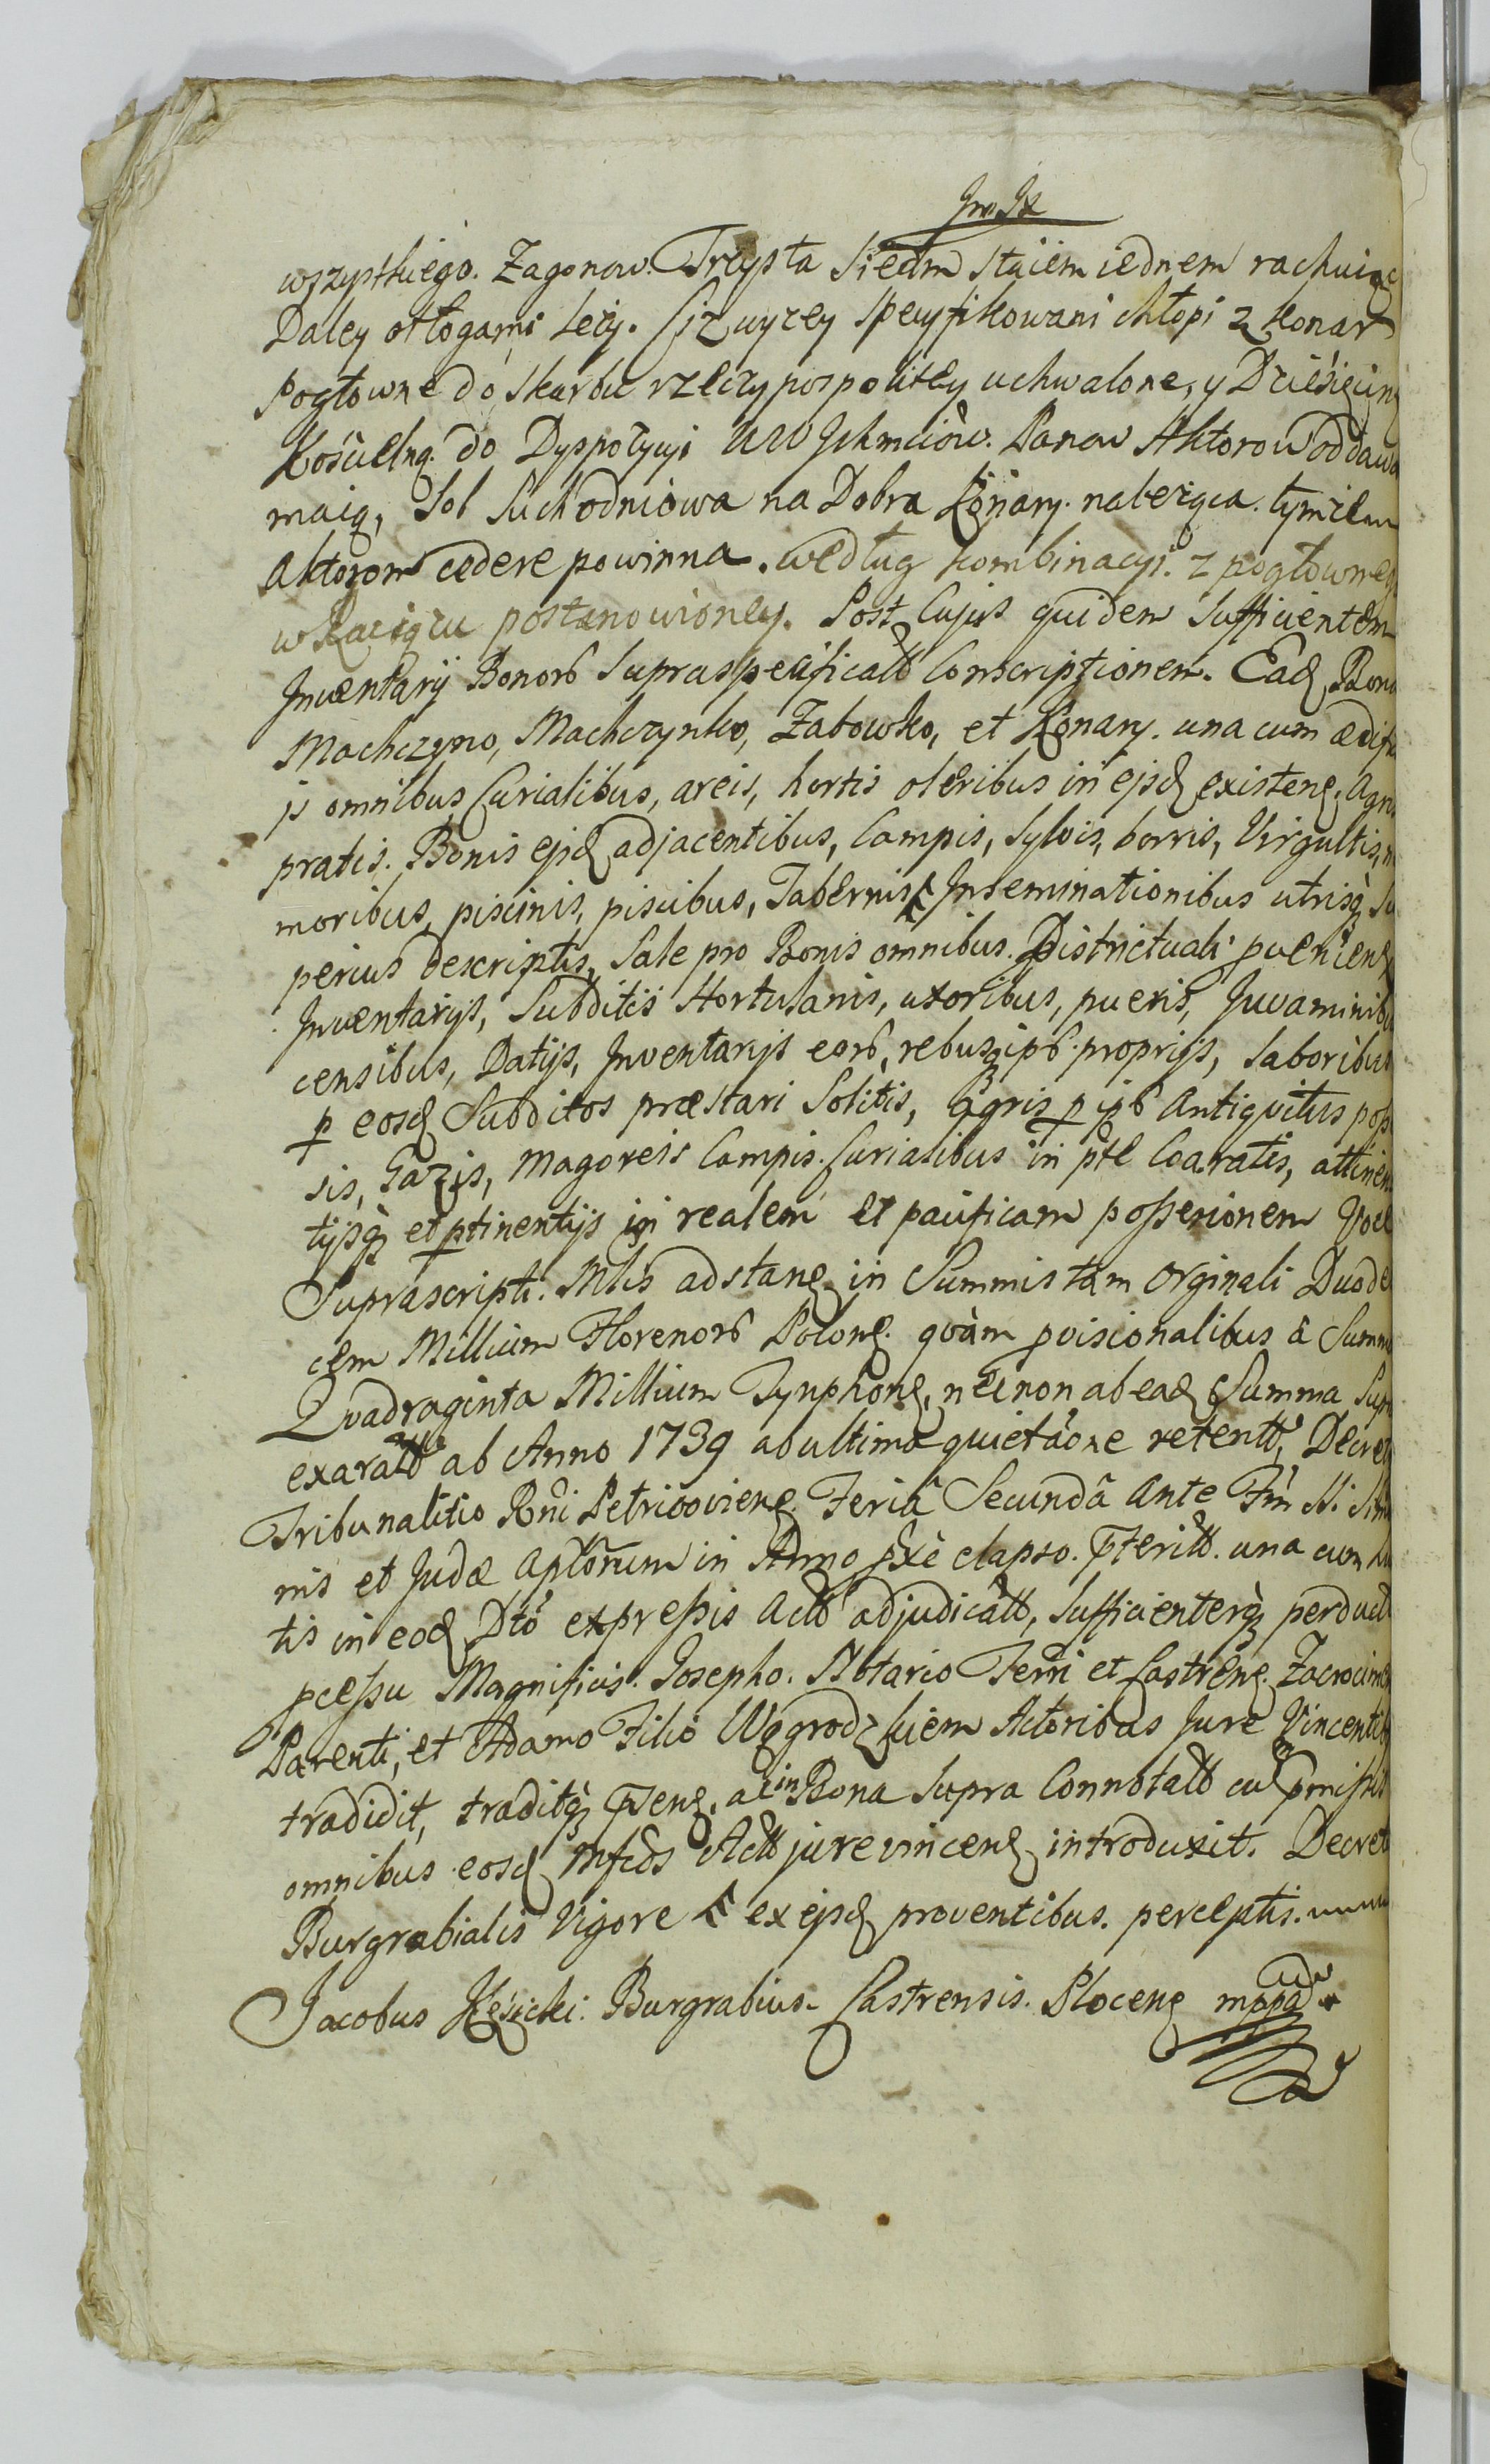 wszystkiego. Zagonow. Trzysta Siedm staiem iednem rachuiąc
Daley otłogami leży. Ciz wyzey specyfikowani chłopi z Konar
Pogłowne do skarbu rzeczypospolitey uchwalone, y Dziesięcinę
Kościelną. do Dyspozycyi WW Ichmciow. Panow Aktorow oddawa
maią, Sol Suchodniowa na Dobra Konary. należąca. tymże
Aktorom cedere powinna. według kombinacyi. z pogłownego
w Raciążu postanowioney. Post Cujus quidem Sufficientem
Inventarij Bonorb Supraspecificatt Conscriptionem. Eadȝ Bona
Mochczyno, Machczynko, Zabowko, et Konary. una cum ædifi
js omnibus Curialibus, areis, hortis oleribus in ejsdȝ existenȝ. Agri
pratis. Bonis ejsdȝ adjacentibus, Campis, Sylvis, borris, Virgultis, ne
moribus, piscinis, piscibus, Tabernis, Inseminationibus utrisqȝ Su
perius descriptis, Sale pro Bonis omnibus. Districtuali pvenienȝ
Inventarijs, Subditis Hortulanis, uxoribus, pueris, Juvaminibus
censibus, Datijs, Inventarijs eorb, rebusqȝ ipsb proprijs, laboribus
p eosdȝ Subditos præstari Solitis, agris p ipb Antiquitus poss
sis, Gazis, Magoreis Campis. Curialibus in pte Coaratis, attinen
tijsqȝ et ptinentijs in realem et pacificam possessionem
Suprascripti. Mlis adstanȝ in Summis tam Orginali Duode
cem Millium Florenorb Polonȝ. quàm pvisionalibus à Summa
Quadraginta Millium Tynphonȝ, nec non ab eadȝ Summa Supr
exaratt ab Anno 1739 ab ultima quietaõne retentt, Decreto
Tribunalitio Rni Petricovienȝ. Feriâ Secundâ Ante Fm SS. Simo
nis et Judæ Aptorum in Anno pxe elapso. Fteritt. una cum
tis in eodȝ Dto expressis Actt adjudicatt, Sufficienterqȝ perduct
pcessu Magnificis. Josepho. Notario Terri et Castrenȝ. Zacrocimen
Parenti, et Adamo Filio Wągrodzkiem Actoribus Jure Vincentibus
tradidit, traditqȝ psenȝ, ac in Bona Supra Connotatt cu pmissis
omnibus eosdȝ Mfcos Actt jure vincenȝ introduxit. Decreto
Burgrabialis Vigore & ex ejsdȝ proventibus. perceptis.
Jacobus Kęsicki. Burgrabius. Castrensis. Plocenȝ mppa